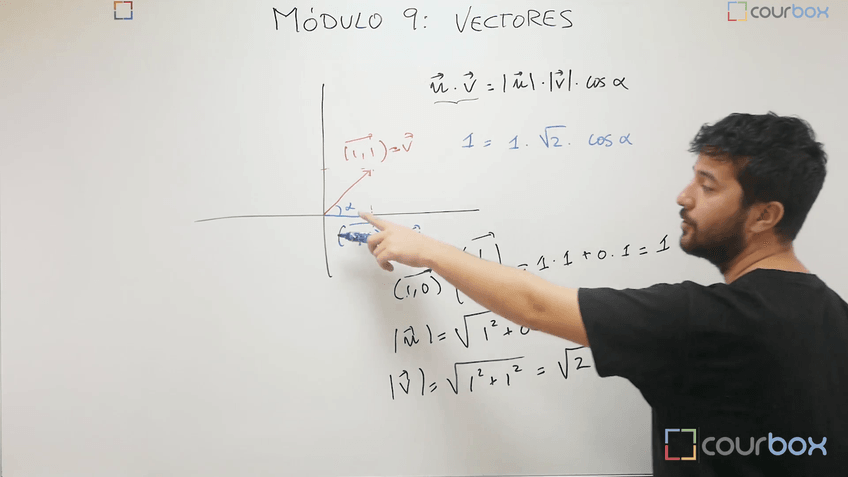 MÓDULO 9: VECTORES
courbox
u⃗ · v⃗ = |u⃗| · |v⃗| · cos α
(1,1) = v⃗
1 = 1 · √2 · cos α
α
(1,0) = 1·1 + 0·1 = 1
|u⃗| = √1² + 0
|v⃗| = √1² + 1² = √2
courbox